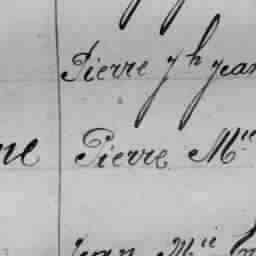 Pierre yh jean
ne Pierre Mie
Jean Mie